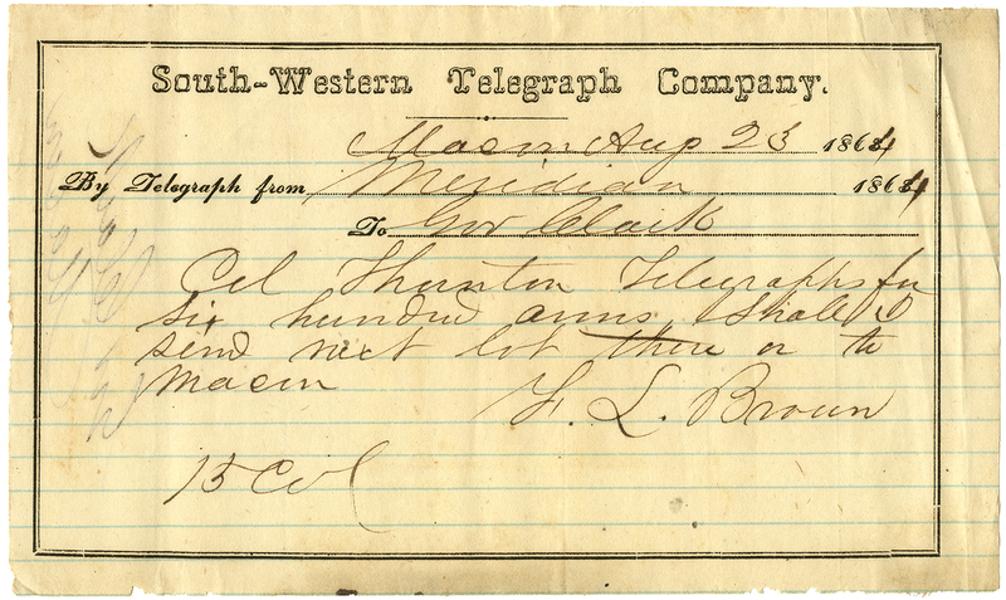 South-Western Telegraph Company.
Macon Aug 23 1864
By Telegraph from Meridian 1864
To Gov Clark
Col Thurnton Telegraphs for
six hundred arms Shall I
send next lot there or to
Macon
F. L. Brown
15 Col